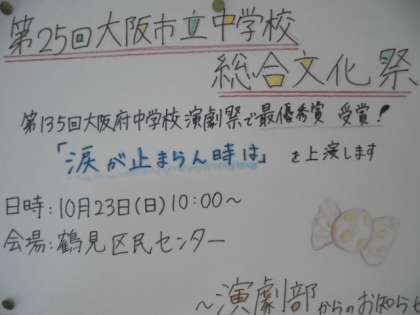 第25回大阪市立中学校
総合文化祭
第135回大阪府中学校演劇祭で最優秀賞 受賞!
「涙が止まらん時は」を上演します
日時:10月23日(日)10:00〜
会場:鶴見区民センター
〜演劇部からのお知らせ